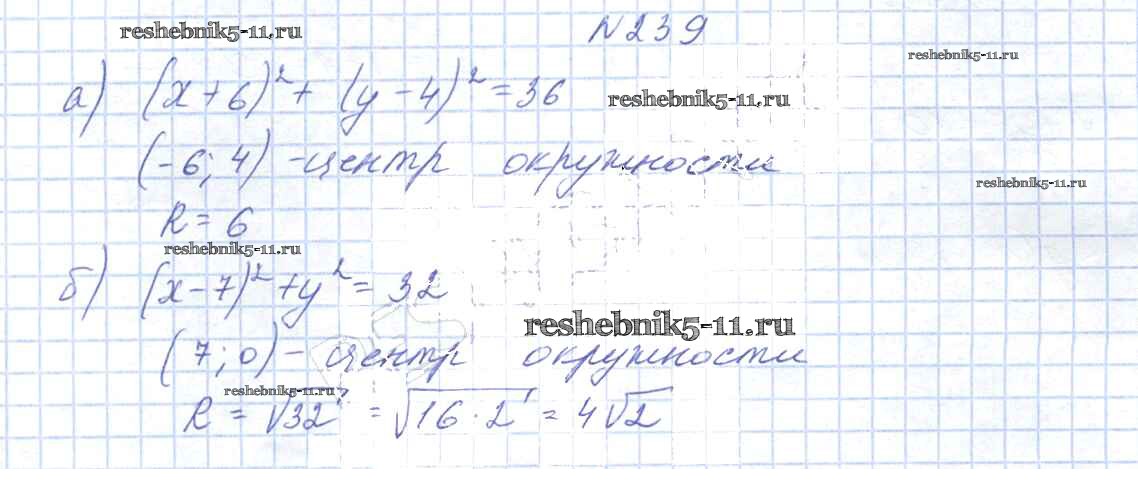 reshebnik5-11.ru
N 239
reshebnik5-11.ru
а) (x + 6)² + (y – 4)² = 36
reshebnik5-11.ru
(-6; 4) – центр окружности
reshebnik5-11.ru
R = 6
reshebnik5-11.ru
б) (x – 7)² + y² = 32
reshebnik5-11.ru
(7; 0) – центр окружности
reshebnik5-11.ru
R = √32 = √16 · 2 = 4√2